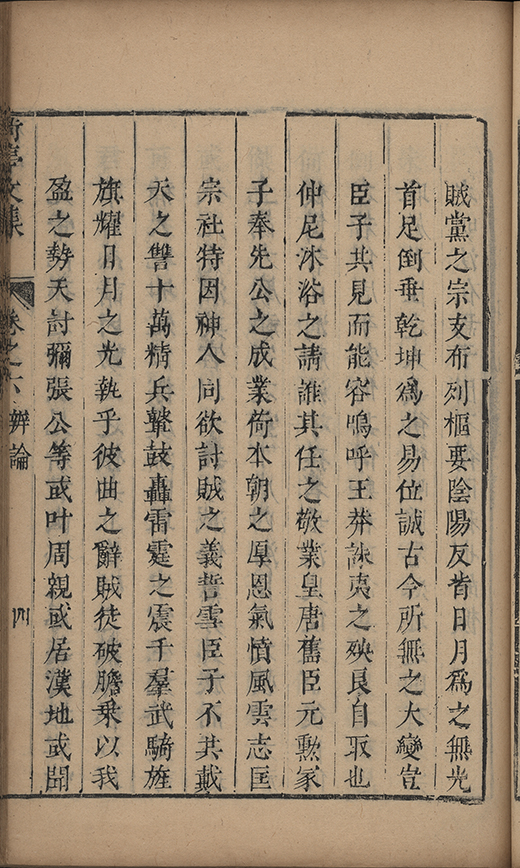 賊黨之宗支布列樞要陰陽反背日月爲之無光
首足倒垂乾坤爲之易位誠古今所無之大變豈
臣子其見而能容嗚呼王莽誅夷之殃良自取也
仲尼沐浴之請誰其任之敬業皇唐舊臣元勳冢
子奉先公之成業荷本朝之厚恩氣憤風雲志匡
宗社特因神人同欲討賊之義誓雪臣子不共戴
天之讐十萬精兵鼙鼓轟雷霆之震千羣武騎旌
旗耀日月之光執乎彼曲之辭賊徒破膽乘以我
盈之勢天討彌張公等或叶周親或居漢地或閫
文集
卷之六
辨論
四